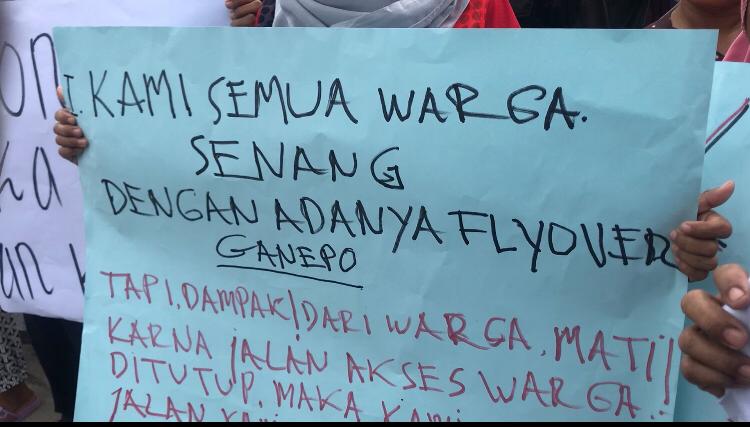 I. KAMI SEMUA WARGA.
SENANG
DENGAN ADANYA FLYOVER
GANEPO
TAPI. DAMPAK! DARI WARGA. MATI!!
KARNA JALAN AKSES WARGA.
DITUTUP. MAKA KAMI
JALAN